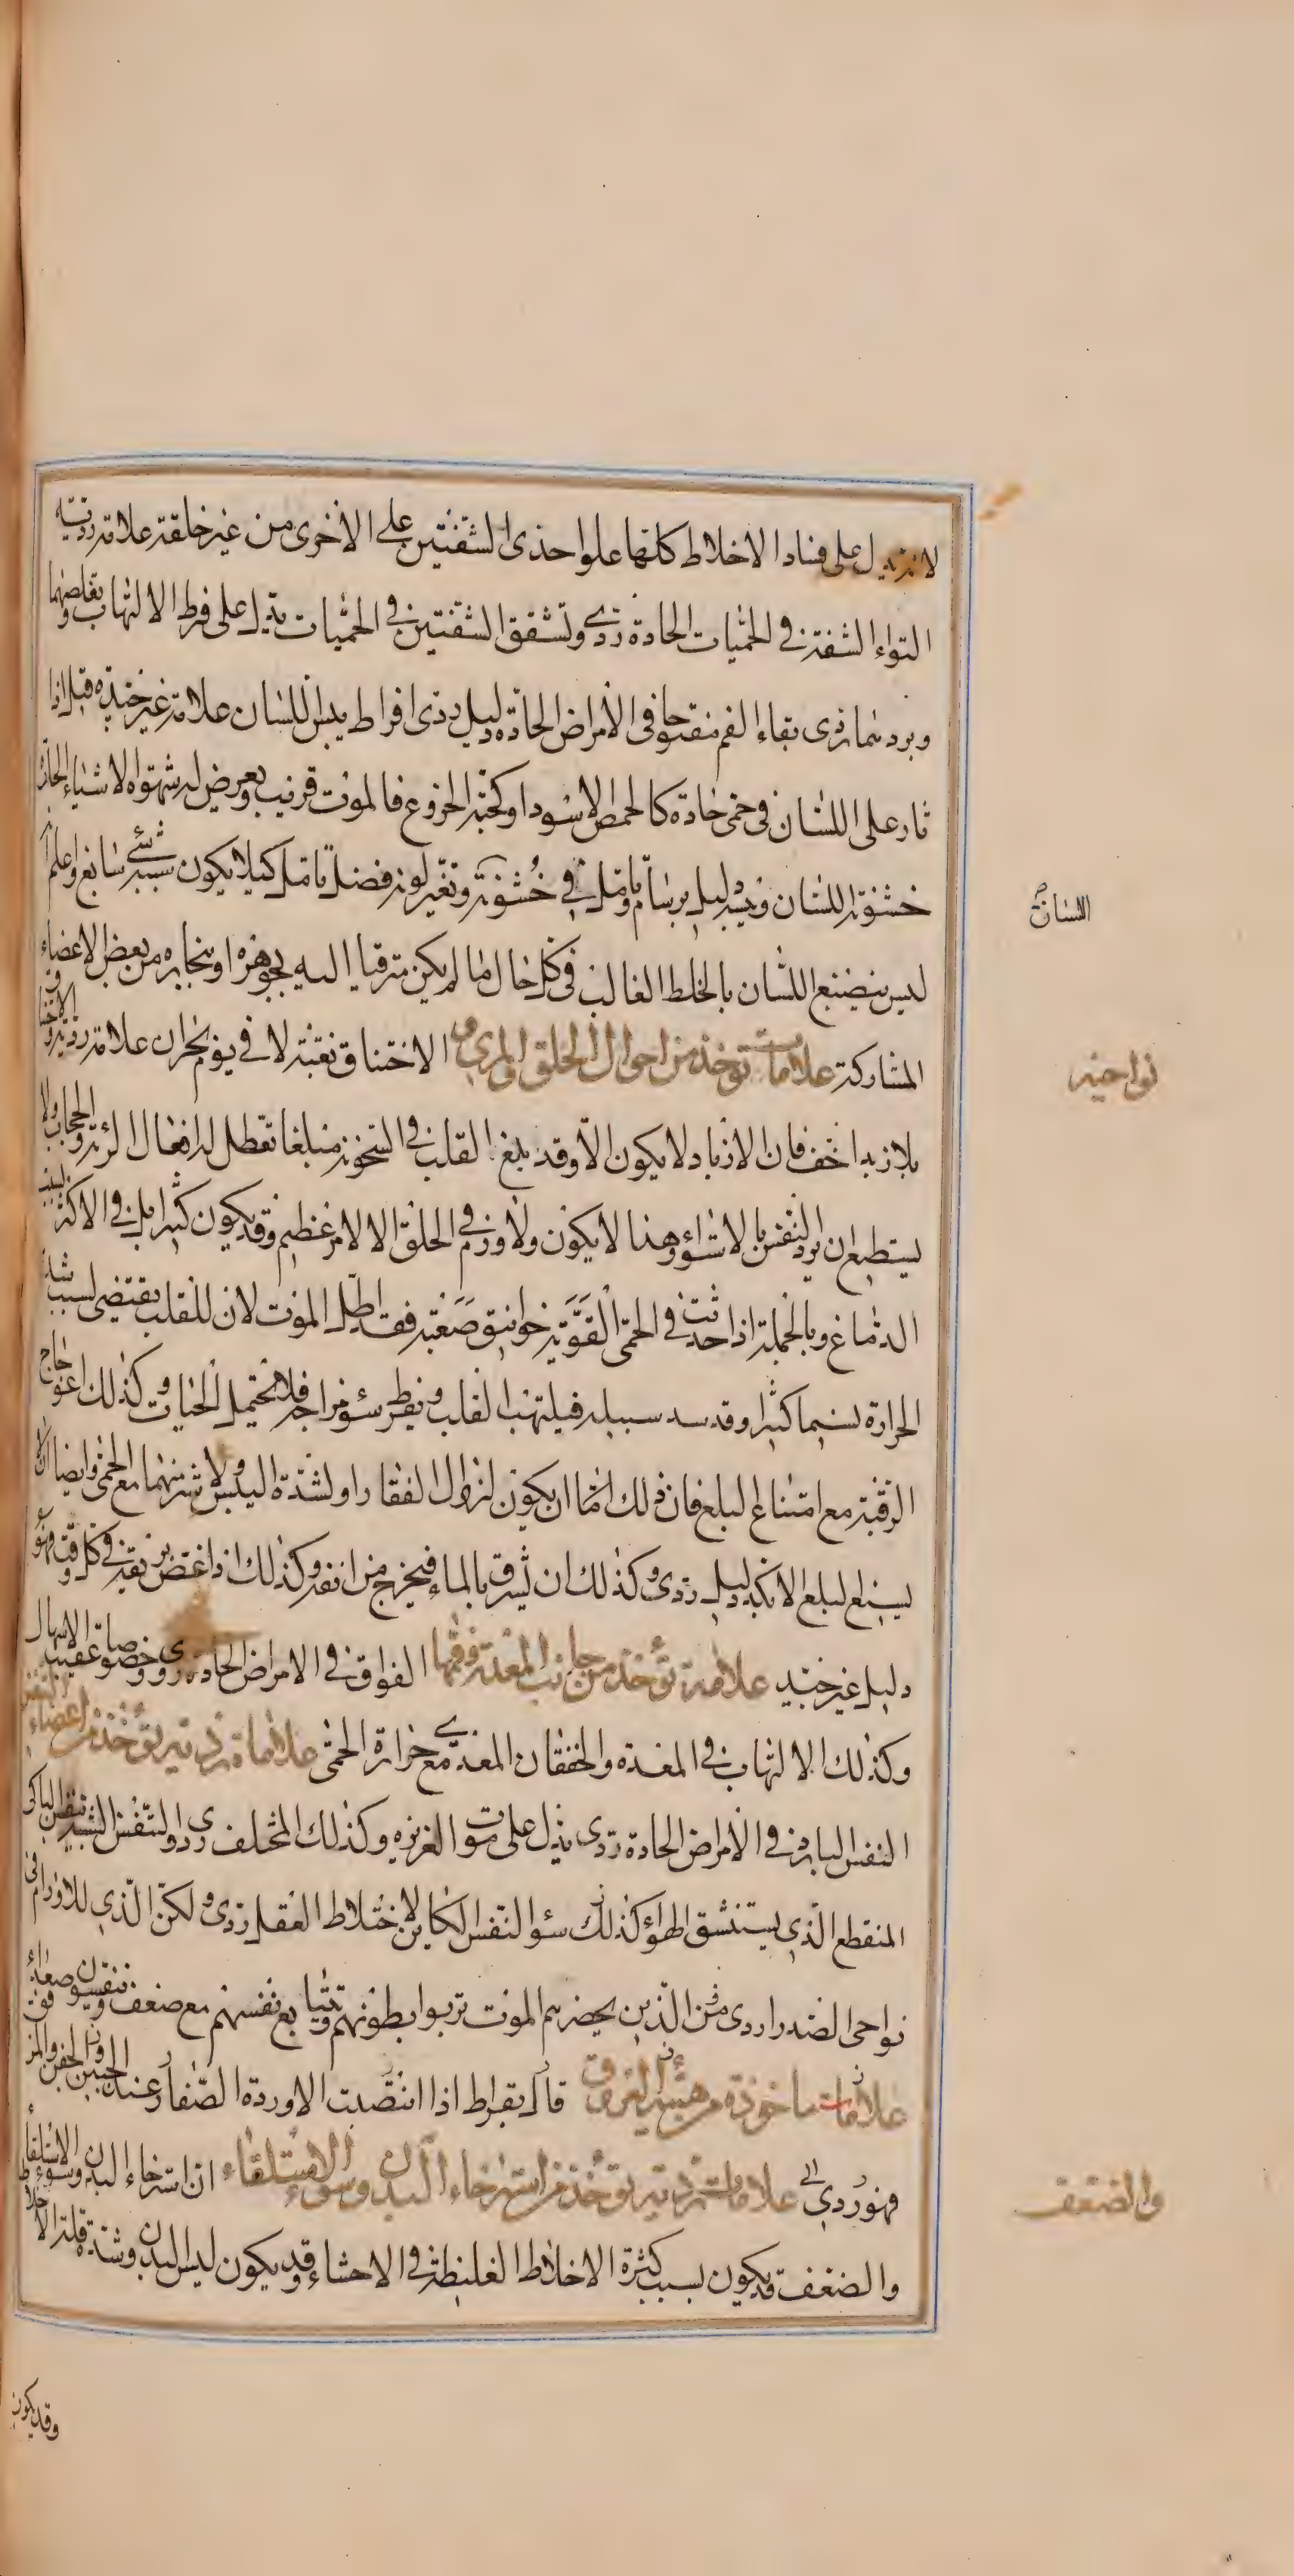 لانه يدل على فساد الاخلاط كلها علو احدى الشفتين على الاخرى من غير خلقة علامة رديه
التواء الشفة في الحميات الحادة ردي وتشقق الشفتين في الحميات يدل على فرط الالتهاب وتقلصهما
وبردهما ردى بقاء الفم مفتوحا فى الامراض الحادة دليل ردى افراط يبس اللسان علامة غير جيدة قيل اذا
ثار على اللسان فى حمى حادة كالحمص الاسود او كحبة الخروع فالموت قريب ويعرض له شهوة الاشياء الحارة
خشونة اللسان ويبسه دليل برسام وتامل في خشونته وتغير لونه فضل تامل كيلا يكون بسبب شئ سابغ واعلم ان
ليس ينصبغ اللسان بالخلط الغالب فى كل حال ما لم يكن مترقيا اليه بجوهره او بخاره من بعض الاعضاء
المشاركة علامات توخذ من احوال الحلق والمرى و الاختناق بغتة لا في يوم بحران علامة ردية والاختناق
بلا زبد اخف فان الازباد لا يكون الا وقد بلغ القلب في السخونة مبلغا تعطل له افعال الرئة والحجاب ولا
يستطيع ان يرد النفس بالاستواء وهذا لا يكون ولا ورم في الحلق الا لامر عظيم وقد يكون كثيرا بل في الاكثر بسبب
الدماغ وبالجملة اذا حدثت في الحمى القوية خوانيق صعبة فقد اطل الموت لان القلب يقتضى لسبب شدة
الحرارة نسيما كثيرا وقد سد سبيله فيلتهب القلب ويفرط سوء مزاجه فلا تحتمل الحيات وكذلك اعوجاج
الرقبة مع امتناع البلع فان ذلك اما ان يكون لزوال الفقار او لشدة اليبس ولا شر منهما مع الحمى وايضا ان لا
يستطيع البلع الا بكد دليل ردى وكذلك ان يشرق بالماء فيخرج من انفه وكذلك اذا غص بريقه في كل وقت فهو
دليل غير جيد علامة توخذ من جانب المعدة وفمها الفواق في الامراض الحادة ردى وخصوصا عقيب الاسهال
وكذلك الالتهاب في المعدة والخفقان المعدي مع حرارة الحمى علامات ردية توخذ من اعضاء النفس
النفس البارد في الامراض الحادة ردى يدل على موت الغريزه وكذلك المختلف ردى والنفس الشبيه بنفس الباكى
المنقطع الذي يستنشق الهواء كذلك سوء النفس الكاين لاختلاط العقل ردى ولكن الذي للاورام فى
نواحى الصدر اردى من الذين يحضرهم الموت تربو بطونهم ويتتابع نفسهم مع ضعف ويتنفسون صعداء
علامات ماخوذة من هيئة العروق قال بقراط اذا انتصبت الاوردة الصغار عند الجبين والجفن والترقوة
فهو ردي علامات ردية توخذ من استرخاء البدن وسوء الاستلقاء ان استرخاء البدن وسوء الاستلقاء
والضعف قد يكون بسبب كثرة الاخلاط الغليظة في الاحشاء وقد يكون ليبس البدن وشدة قلة الاخلاط
اللسان
نواحيه
والضعف
وقد يكون